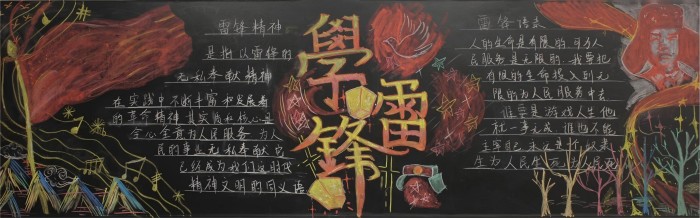 雷锋精神
是指以雷锋的
无私奉献精神
在实践中不断丰富和发展着
的革命精神其实质和核心是
全心全意为人民服务 为人
民的事业无私奉献它
已经成为我们这时代
精神文明的同义语
學雷鋒
雷锋语录
人的生命是有限的 可为人
民服务是无限的 我要把
有限的生命投入到无
限的为人民服务中去
谁要是游戏人生他
就一事无成 谁不能
主宰自己 永远是个奴隶
生为人民生 死为人民死